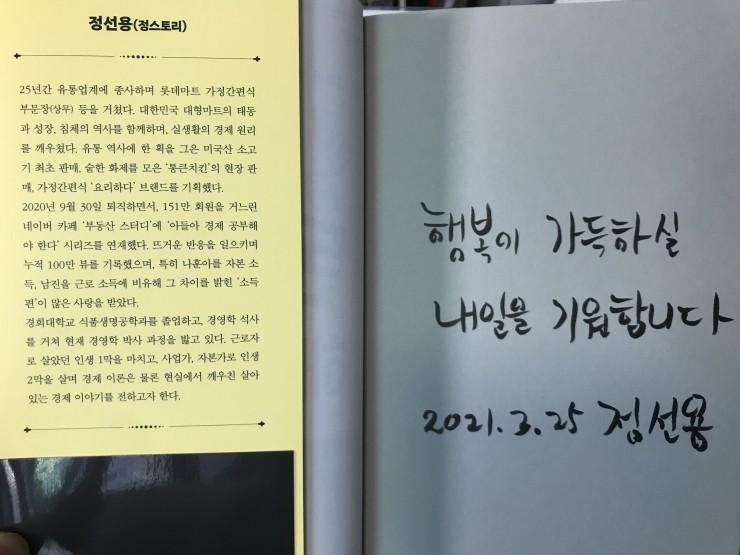 정선용(정스토리)
25년간 유통업계에 종사하며 롯데마트 가정간편식
부문장(상무) 등을 거쳤다. 대한민국 대형마트의 태동
과 성장, 침체의 역사를 함께하며, 실생활의 경제 원리
를 깨우쳤다. 유통 역사에 한 획을 그은 미국산 소고
기 최초 판매, 숱한 화제를 모은 ‘통큰치킨’의 현장 판
매, 가정간편식 ‘요리하다’ 브랜드를 기획했다.
2020년 9월 30일 퇴직하면서, 151만 회원을 거느린
네이버 카페 ‘부동산 스터디’에 ‘아들아 경제 공부해
야 한다’ 시리즈를 연재했다. 뜨거운 반응을 일으키며
누적 100만 뷰를 기록했으며, 특히 나훈아를 자본 소
득, 남진을 근로 소득에 비유해 그 차이를 밝힌 ‘소득
편’이 많은 사랑을 받았다.
경희대학교 식품생명공학과를 졸업하고, 경영학 석사
를 거쳐 현재 경영학 박사 과정을 밟고 있다. 근로자
로 살았던 인생 1막을 마치고, 사업가, 자본가로 인생
2막을 살며 경제 이론은 물론 현실에서 깨우친 살아
있는 경제 이야기를 전하고자 한다.
행복이 가득하실
내일을 기원합니다
2021.3.25 정선용